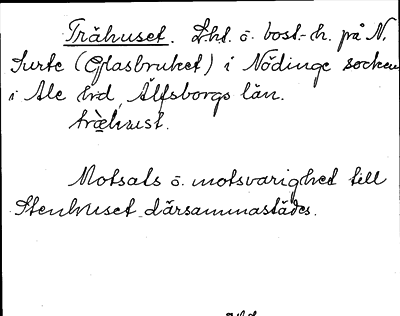 Trähuset. Lht. o. bost.-h. på N.
Surte (Glasbruket) i Nödinge socken
i Ale hrd, Älfsborgs län.
trähust.
Motsats o. motsvarighet till
Stenhuset därsammastädes.